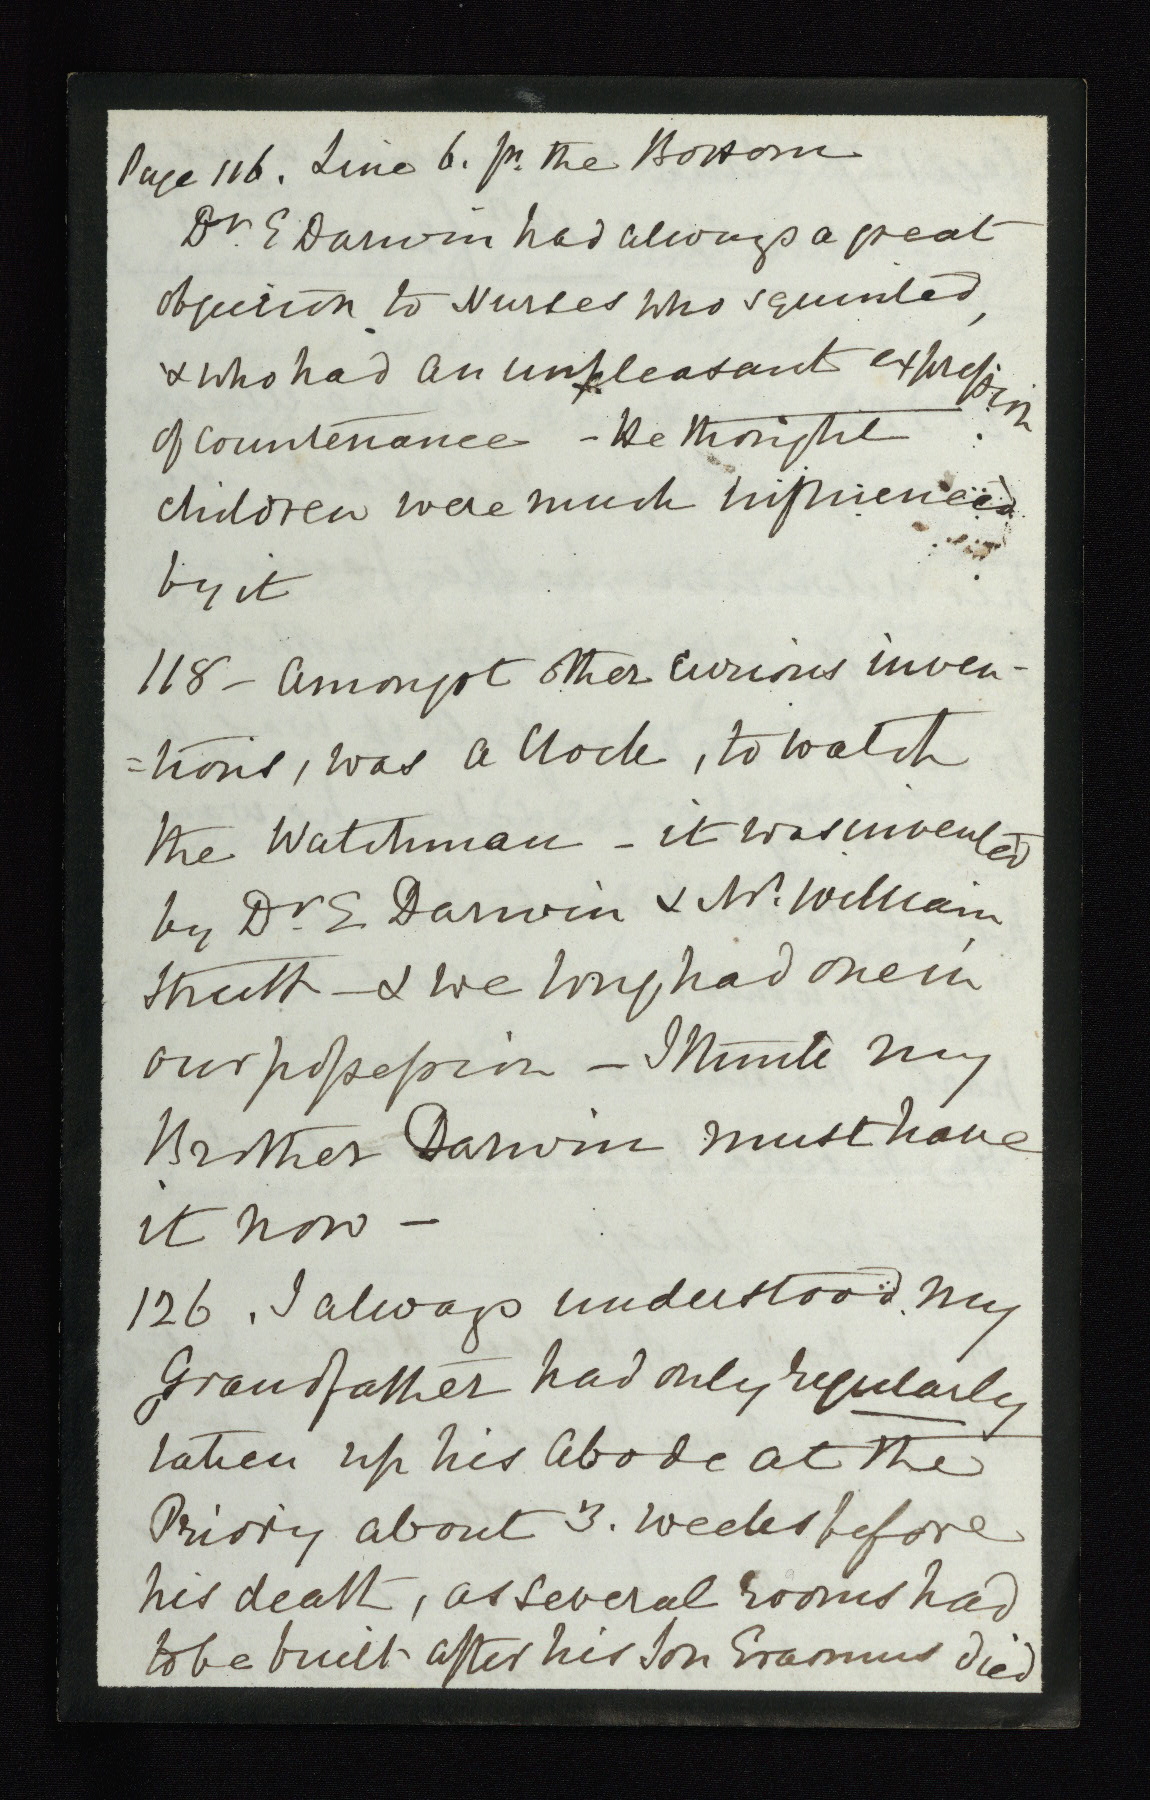 Page 116. Line 6. fm. the Bottom
Dr. E Darwin had always a great
objection to Nurses who squinted,
& who had an unpleasant expression
of countenance - He thought
children were much influenced
by it
118 - Amongst other curious inven-
=tions, was a Clock, to watch
the Watchman - it was invented
by Dr. E Darwin & Mr. William
Strutt - & we long had one in
our possession - I think my
Brother Darwin must have
it now -
126. I always understood my
Grandfather had only regularly
taken up his abode at the
Priory about 3. weeks before
his death, as several rooms had
to be built after his Son Erasmus died